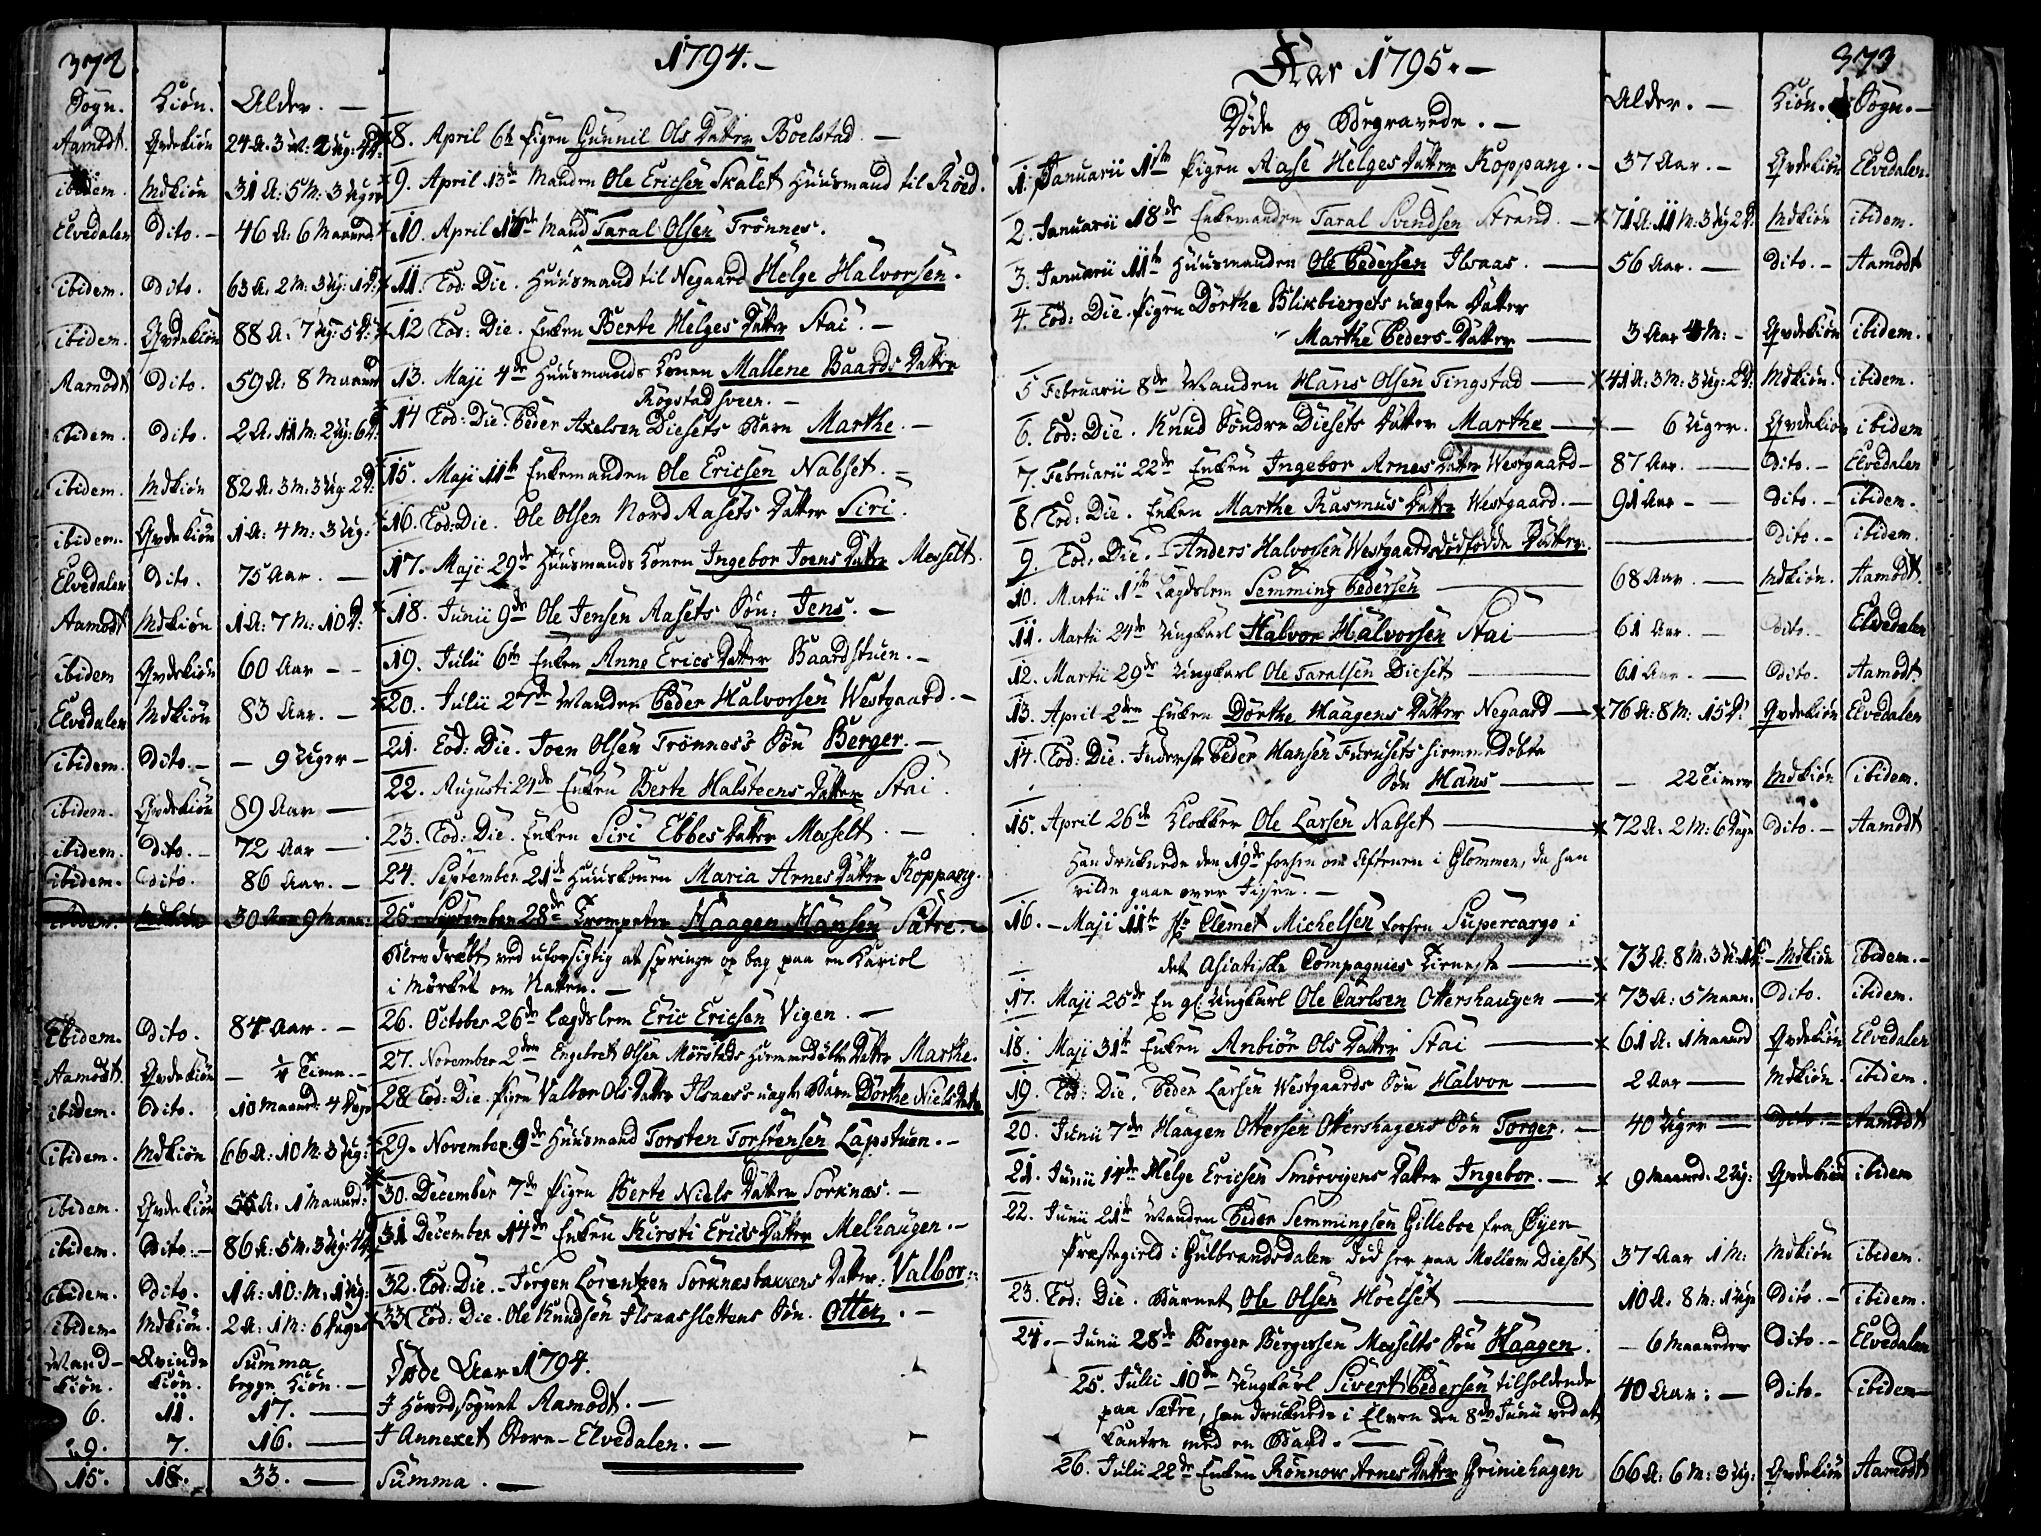 372
1794.
Sogn. Kiön. Alder.
Aamodt. Qvdekiön 24 A: 3 M: 2 Ug: 4 D: 8. April 6te Pigen Gunnil Ols Datter Boelstad.
ibidem. Mdkiön 31 A: 5 M: 3 Uger 9. April 13de Manden Ole Ericsen Skalet Huusmand til Röed.
Elvedalen Dito. 46 A: 6 Maaned. 10. April 16de Manden Taral Olsen Trönnes.
ibidem. Dito. 63 A. 2 M: 3 Ug: 1 D: 11. Eod: Die. Huusmand til Negaard Helge Halvorsen.
ibidem. Qvdekiön 88 A. 7 Ug: 5 D: 12 Eod: Die. Enken Berte Helges Datter Stai.
Aamodt Dito. 59 A: 8 Maaned 13. Maji 4de Huusmands Konen Mallene Baards Datter
Rögstadsveen.
ibidem. Dito. 2 A. 11 M: 2 Ug: 6 D: 14 Eod: Die. Peder Axelsen Diesets Barn Marthe.
ibidem. Mdkiön 82 A. 3 M: 3 Ug 2 D: 15. Maji 11te Enkemanden Ole Ericsen Nabset.
ibidem. Qvdekiön 1 A: 4 M: 3 Ug: 16. Eod: Die. Ole Olsen Nord Aasets Datter Siri.
Elvedalen Dito. 75 Aar. 17. Maji 29de Huusmands Konen Ingebor Joens Datter Messelt.
Aamodt Mdkiön 1 A: 7 M: 10 D: 18. Junii 9de Ole Jensen Aasets Sön: Jens.
ibidem Qvdekiön 60 Aar 19. Julii 6te Enken Anne Erics Datter Baardstuen.
Elvedalen Mdkiön 83 Aar. 20. Julii 27de Manden Peder Halvorsen Westgaard.
ibidem. Dito. 9 Uger 21. Eod: Die. Joen Olsen Trönnes's Sön Berger.
ibidem. Qvdekiön 89 Aar 22. Augusti 24de Enken Berte Halsteens Datter Stai.
ibidem. Dito. 72 Aar 23. Eod: Die. Enken Siri Ebbes Datter Messelt.
ibidem. Dito. 86 Aar. 24. September 21de Huuskonen Maria Arnes Datter Koppang.
ibidem. Mdkiön 30 Aar 9 Maan: 25. September 28de Trompeter Haagen Hansen Sætre.
Blev dræbt ved uforsigtig at springe op bag paa en Kariol
i Mörket om Natten.
Ibidem. Dito. 84 Aar. 26. October 26de Lægdslem Eric Ericsen Vigen.
Aamodt. Qvdekiön Time. 27. November 2den Engebret Olsen Mörstads Hiemmedöbte Datter Marthe.
ibidem. Dito. 10 Maaned: 4 Dage 28 Eod: Die. Pigen Valbor Ols Datter Ilsaas's uægte Barn Dorthe Niels Datter
ibidem. Mdkiön 66 A: 10 M: 3 Ug: 29. November 9de Huusmand Torsten Torstensen Lapstuen.
ibidem. Qvdekiön 55 A. 1 Maaned: 30. December 7de Pigen Berte Niels Datter Sorknæs.
ibidem. Dito. 86 A: 5 M: 3 Ug: 4 D: 31 December 14de Enken Kirsti Erics Datter Melhaugen.
ibidem. Dito. 1 A: 10: M: 1 Ug: 32. Eod: Die. Jörgen Lorentzen Sorknæsbakkens Datter: Valbor:
ibidem. Mdkiön. 2 A: 1 M: 6 Dage 33 Eod: Die. Ole Knudsen Ilsaasslettens Sön. Otter.
Mand- Qvinde Summa Döde Aar 1794.
kiön. kiön. begge Kiön.
6. 11. 17. I Hovedsognet Aamodt.
9. 7. 16. I Annexet Store-Elvedalen.
15. 18. 33. Summa.
373
Aar 1795.
Döde og Begravede. Alder. Kiön. Sogn.
1. Januarii 1ste Pigen Aase Helges Datter Koppang. 37 Aar. Qvdekiön Elvedalen.
2. Januarii 18de Enkemanden Taral Svendsen Strand. 71 A: 11 M: 3 Ug 2 D: Mdkiön ibidem.
3. Januarii 11te Huusmanden Ole Pedersen Ilsaas. 56 Aar. Dito. Aamodt
4. Eod: Die. Pigen Dorthe Blikbiergets uægte Datter
Marthe Peders-Datter 3 Aar 4 M: Qvdekiön ibidem.
5 Februarii 8de Manden Hans Olsen Tingstad 41 A: 3 M: 3 Ug: 2 D: Mdkiön. ibidem.
6. Eod: Die. Knud Söndre Diesets Datter Marthe 6 Uger. Qvdekiön ibidem
7. Februarii 22de Enken Ingebor Arnes Datter Westgaard 87 Aar. Dito. Elvedalen
8. Eod: Die. Enken Marthe Rasmus Datter Westgaard. 91 Aar Dito. ibidem.
9. Eod: Die. Anders Halvorsen Westgaards dödfödde Datter. Dito. ibidem.
10. Martii 1ste Lægdslem Semming Pedersen 68 Aar. Mdkiön. Aamodt.
11. Martii 24de Ungkarl Halvor Halvorsen Stai 61 Aar. Dito. Elvedalen
12. Martii 29de Ungkarl Ole Taralsen Dieset 61 Aar. Dito. Aamodt
13. April 2den Enken Dorthe Haagens Datter Negaard 76 A: 8 M: 15 D: Qvdekiön Elvedalen
14. Eod: Die. Inderste Peder Hansen Furusets hiemmedöbte
Sön Hans 22 Timer Mdkiön ibidem.
15. April 26de Klokker Ole Larsen Nabset 72 A. 2 M: 6 Dage Dito. Aamodt
Han druknede den 19de forhen om Aftenen i Glommen, da han
vilde gaae over Iisen.
16. Maji 11te Hr Clemet Michelsen forhen Supercargo i
det Asiatiske Compagnies Tieneste 73 A: 8 M: 3 U: 1 D: Mdkiön Ibidem.
17. Maji 25de En gl. Ungkarl Ole Carlsen Ottershaugen 73 A: 5 Maan. Dito. ibidem.
18. Maji 31te Enken Anbiör Ols Datter Stai 61 A. 1 Maaned Qvdekiön Elvedalen
19. Eod: Die. Peder Larsen Westgaards Sön Halvor 2 Aar Mdkiön. ibidem.
20. Junii 7de Haagen Ottersen Ottershagens Sön Torger. 40 Uger Dito. Aamodt
21. Junii 14de Helge Ericsen Smörvigens Datter Ingebor. 9 Maaned. 2 Ug: Qvdekiön ibidem
22. Junii 21de Manden Peder Semmingsen Gilleboe fra Öyer
Præstegield i Gulbrandsdalen död her paa Mellem Dieset 37 Aar 1 M: Mdkiön ibidem.
23. Eod: Die. Barnet Ole Olsen Hoelset 10 A. 8 M: 1 Uge Dito. ibidem.
24. Junii 28de Berger Bergersen Messelts Sön Haagen. 6 Maaneder Dito. Elvedalen
25. Julii 10de Ungkarl Sivert Pedersen tilholdende 40 Aar: Dito. ibidem
paa Sætre, han druknede i Elven den 8de Junii ved at
kantre med en Baad.
26. Julii 22de Enken Rönnow Arnes Datter Griniehagen 66 A: 6 M: 3 Ug: Qvdekiön Aamodt